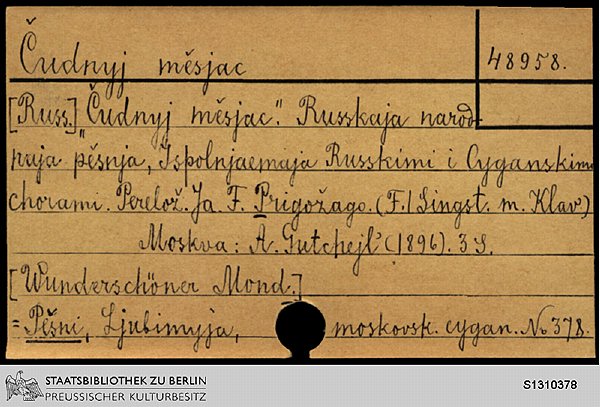 Čudnyj měsjac
48958.
[Russ.] "Čudnyj měsjac." Russkaja narod-
naja pěsnja, Ispolnjaemaja Russkimi i Cyganskimi
chorami. Perelož. Ja. F. Prigožago. (F. 1 Singst. m. Klav.)
Moskva: A. Gutchejl' (1896). 3 S.
[Wunderschöner Mond.]
= Pěsni, Ljubimyja, moskovsk. cygan. No 378.
STAATSBIBLIOTHEK ZU BERLIN
PREUSSISCHER KULTURBESITZ
S1310378